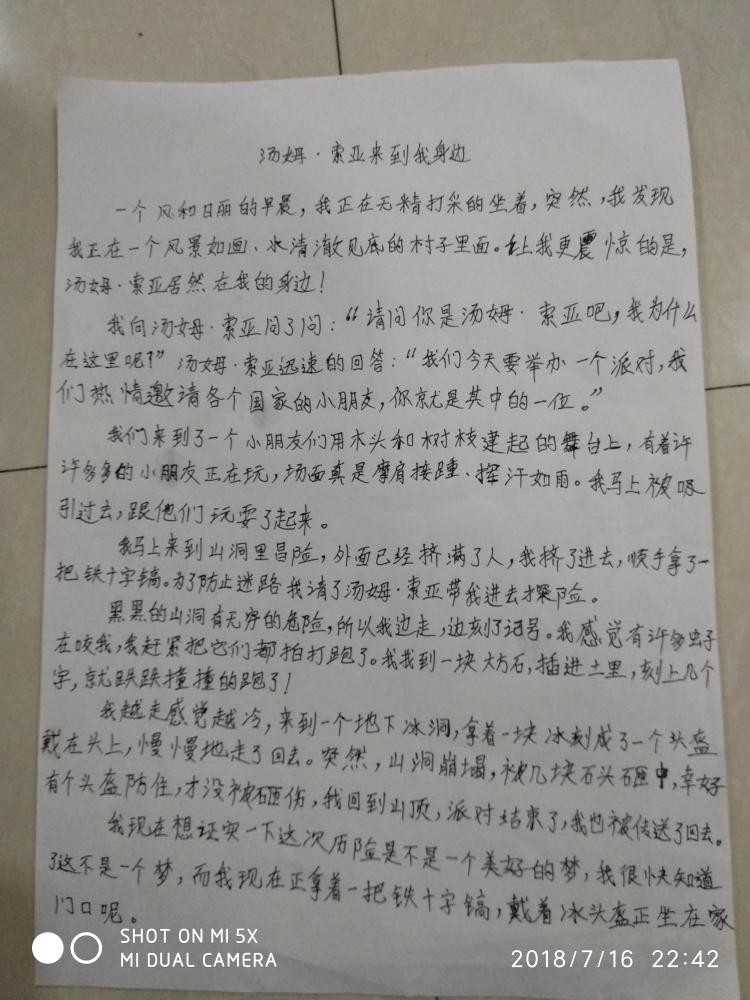 汤姆·索亚来到我身边
一个风和日丽的早晨，我正在无精打采的坐着，突然，我发现
我正在一个风景如画、水清澈见底的村子里面。让我更震惊的是，
汤姆·索亚居然在我的身边！
我向汤姆·索亚问了问：“请问你是汤姆·索亚吧，我为什么
在这里呢？”汤姆·索亚迅速的回答：“我们今天要举办一个派对，我
们热情邀请各个国家的小朋友，你就是其中的一位。”
我们来到了一个小朋友们用木头和树枝建起的舞台上，有着许
许多多的小朋友正在玩，场面真是摩肩接踵、挥汗如雨。我马上被吸
引过去，跟他们玩耍了起来。
我马上来到山洞里冒险，外面已经挤满了人，我挤了进去，顺手拿了一
把铁十字镐。为了防止迷路我请了汤姆·索亚带我进去探险。
黑黑的山洞有无穷的危险，所以我边走，边刻了记号。我感觉有许多虫子
在咬我，我赶紧把它们都拍打跑了。我找到一块大方石，插进土里，刻上几个
字，就跌跌撞撞的跑了！
我越走感觉越冷，来到一个地下冰洞，拿着一块冰刻成了一个头盔
戴在头上，慢慢地走了回去。突然，山洞崩塌，被几块石头砸中，幸好
有个头盔防住，才没被砸伤，我回到山顶，派对结束了，我也被传送了回去。
我现在想证实一下这次历险是不是一个美好的梦，我很快知道
了这不是一个梦，而我现在正拿着一把铁十字镐，戴着冰头盔正坐在家
门口呢。
SHOT ON MI 5X
MI DUAL CAMERA
2018/7/16 22:42